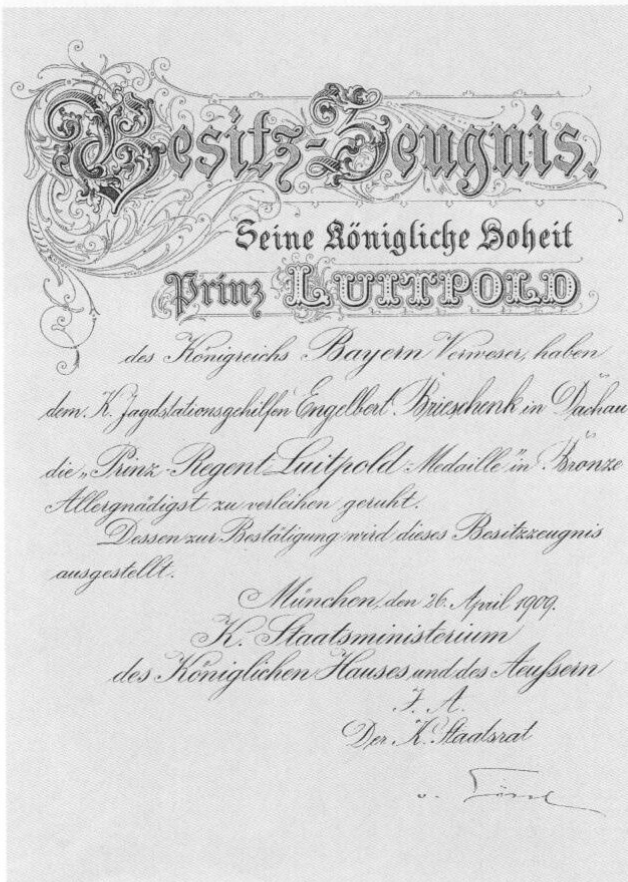 Besitz-Zeugnis.
Seine Königliche Hoheit
Prinz LUITPOLD
des Königreichs Bayern Verweser, haben
dem K. Jagdstationsgehilfen Engelbert Brieschenk in Dachau
die „Prinz-Regent Luitpold-Medaille" in Bronze
Allergnädigst zu verleihen geruht.
Dessen zur Bestätigung wird dieses Besitzzeugnis
ausgestellt.
München, den 26. April 1909.
K. Staatsministerium
des Königlichen Hauses und des Aeußern
J. A.
Der K. Staatsrat
v.